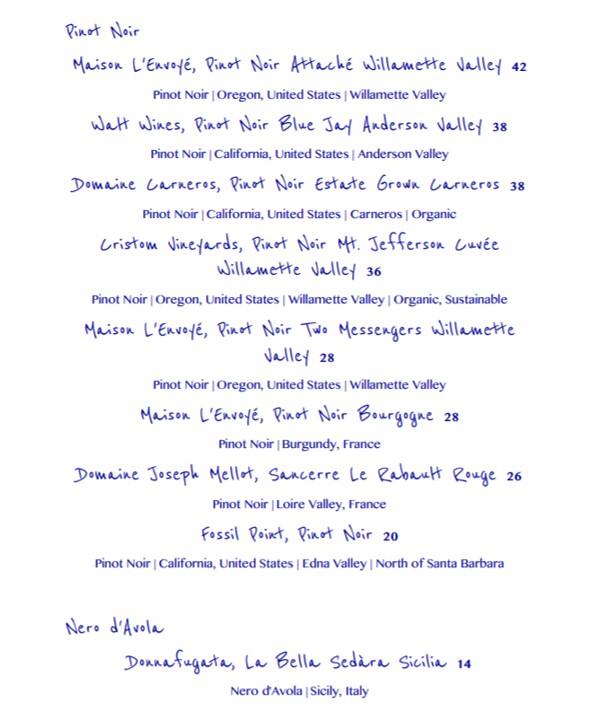 Pinot Noir
Maison L'Envoyé, Pinot Noir Attaché Willamette Valley 42
Pinot Noir | Oregon, United States | Willamette Valley
Watt Wines, Pinot Noir Blue Jay Anderson Valley 38
Pinot Noir | California, United States | Anderson Valley
Domaine Carneros, Pinot Noir Estate Grown Carneros 38
Pinot Noir | California, United States | Carneros | Organic
Cristom Vineyards, Pinot Noir Mt. Jefferson Cuvée
Willamette Valley 36
Pinot Noir | Oregon, United States | Willamette Valley | Organic, Sustainable
Maison L'Envoyé, Pinot Noir Two Messengers Willamette
Valley 28
Pinot Noir | Oregon, United States | Willamette Valley
Maison L'Envoyé, Pinot Noir Bourgogne 28
Pinot Noir | Burgundy, France
Domaine Joseph Mellot, Sancerre Le Rabault Rouge 26
Pinot Noir | Loire Valley, France
Fossil Point, Pinot Noir 20
Pinot Noir | California, United States | Edna Valley | North of Santa Barbara
Nero d'Avola
Donnafugata, La Bella Sedàra Sicilia 14
Nero d'Avola | Sicily, Italy